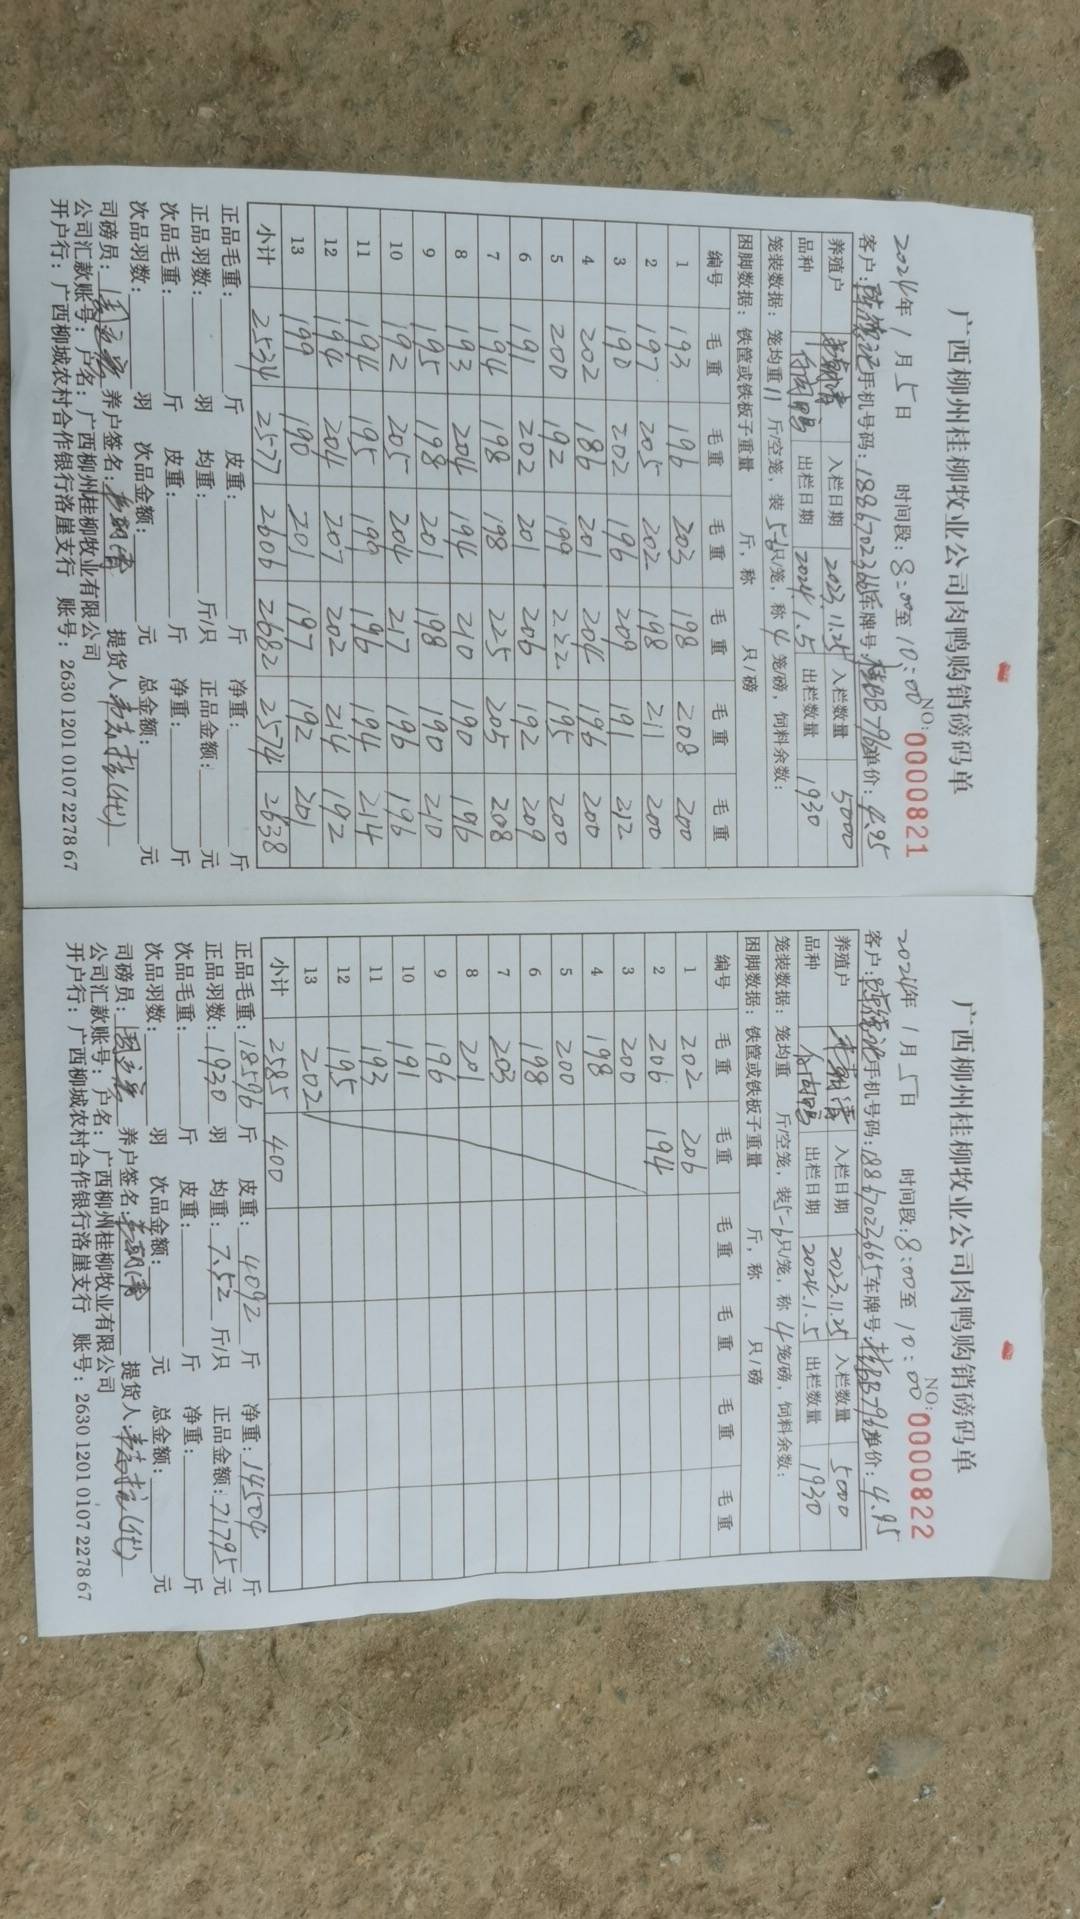 广西柳州桂柳牧业公司肉鸭购销磅码单
NO: 0000821
2024年1月5日 时间段: 8:00至10:00
客户: 手机号码: 车牌号: 桂BB796 单价: 4.95
养殖户 入栏日期 2023.11.25 入栏数量 5000
品种 出栏日期 2024.1.5 出栏数量 1930
笼装数据: 笼均重11斤/空笼, 装5-6只/笼, 称4笼/磅, 饲料余数:
困脚数据: 铁筐或铁板子重量 斤, 称 只/磅
编号 毛重 毛重 毛重 毛重 毛重 毛重
1 193 196 203 198 208 200
2 197 205 202 198 211 200
3 190 202 196 209 191 212
4 202 186 201 204 196 200
5 200 192 199 222 195 200
6 191 202 201 206 192 209
7 194 198 198 225 205 208
8 193 204 194 210 190 196
9 195 198 201 198 190 210
10 192 205 204 217 196 196
11 194 195 199 196 194 214
12 194 204 207 202 214 192
13 199 190 201 197 192 201
小计 2534 2577 2606 2682 2574 2638
正品毛重: 斤 皮重: 斤 净重: 斤
正品羽数: 羽 均重: 斤/只 正品金额: 元
次品毛重: 斤 皮重: 斤 净重: 斤
次品羽数: 羽 次品金额: 元 总金额: 元
司磅员: 养户签名: 提货人:
公司汇款账号: 户名: 广西柳州桂柳牧业有限公司
开户行: 广西柳城农村合作银行洛崖支行 账号: 2630 1201 0107 2278 67
广西柳州桂柳牧业公司肉鸭购销磅码单
NO: 0000822
2024年1月5日 时间段: 8:00至10:00
客户: 手机号码: 18867023665 车牌号: 桂BB796 单价: 4.95
养殖户 入栏日期 2023.11.25 入栏数量 5000
品种 出栏日期 2024.1.5 出栏数量 1930
笼装数据: 笼均重 斤/空笼, 装5-6只/笼, 称4笼/磅, 饲料余数:
困脚数据: 铁筐或铁板子重量 斤, 称 只/磅
编号 毛重 毛重 毛重 毛重 毛重 毛重
1 202 206
2 206 194
3 200
4 198
5 200
6 198
7 203
8 201
9 196
10 191
11 193
12 195
13 202
小计 2585 400
正品毛重: 18596斤 皮重: 4092斤 净重: 14504斤
正品羽数: 1930羽 均重: 7.52斤/只 正品金额: 71795元
次品毛重: 斤 皮重: 斤 净重: 斤
次品羽数: 羽 次品金额: 元 总金额: 元
司磅员: 养户签名: 提货人:
公司汇款账号: 户名: 广西柳州桂柳牧业有限公司
开户行: 广西柳城农村合作银行洛崖支行 账号: 2630 1201 0107 2278 67